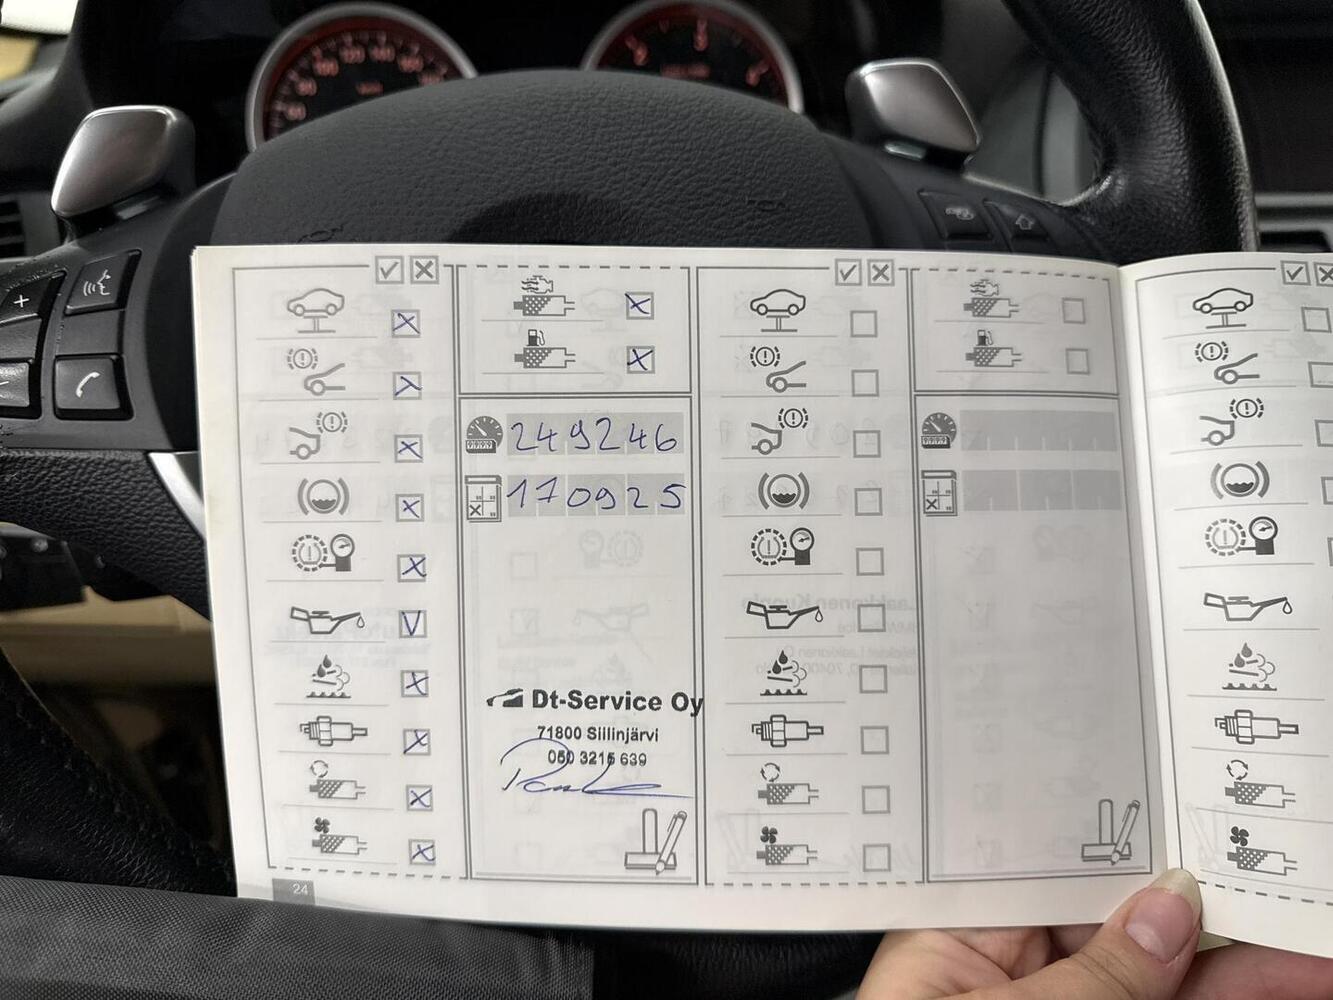 249246
170925
Dt-Service Oy
71800 Siilinjärvi
050 3215 639
24